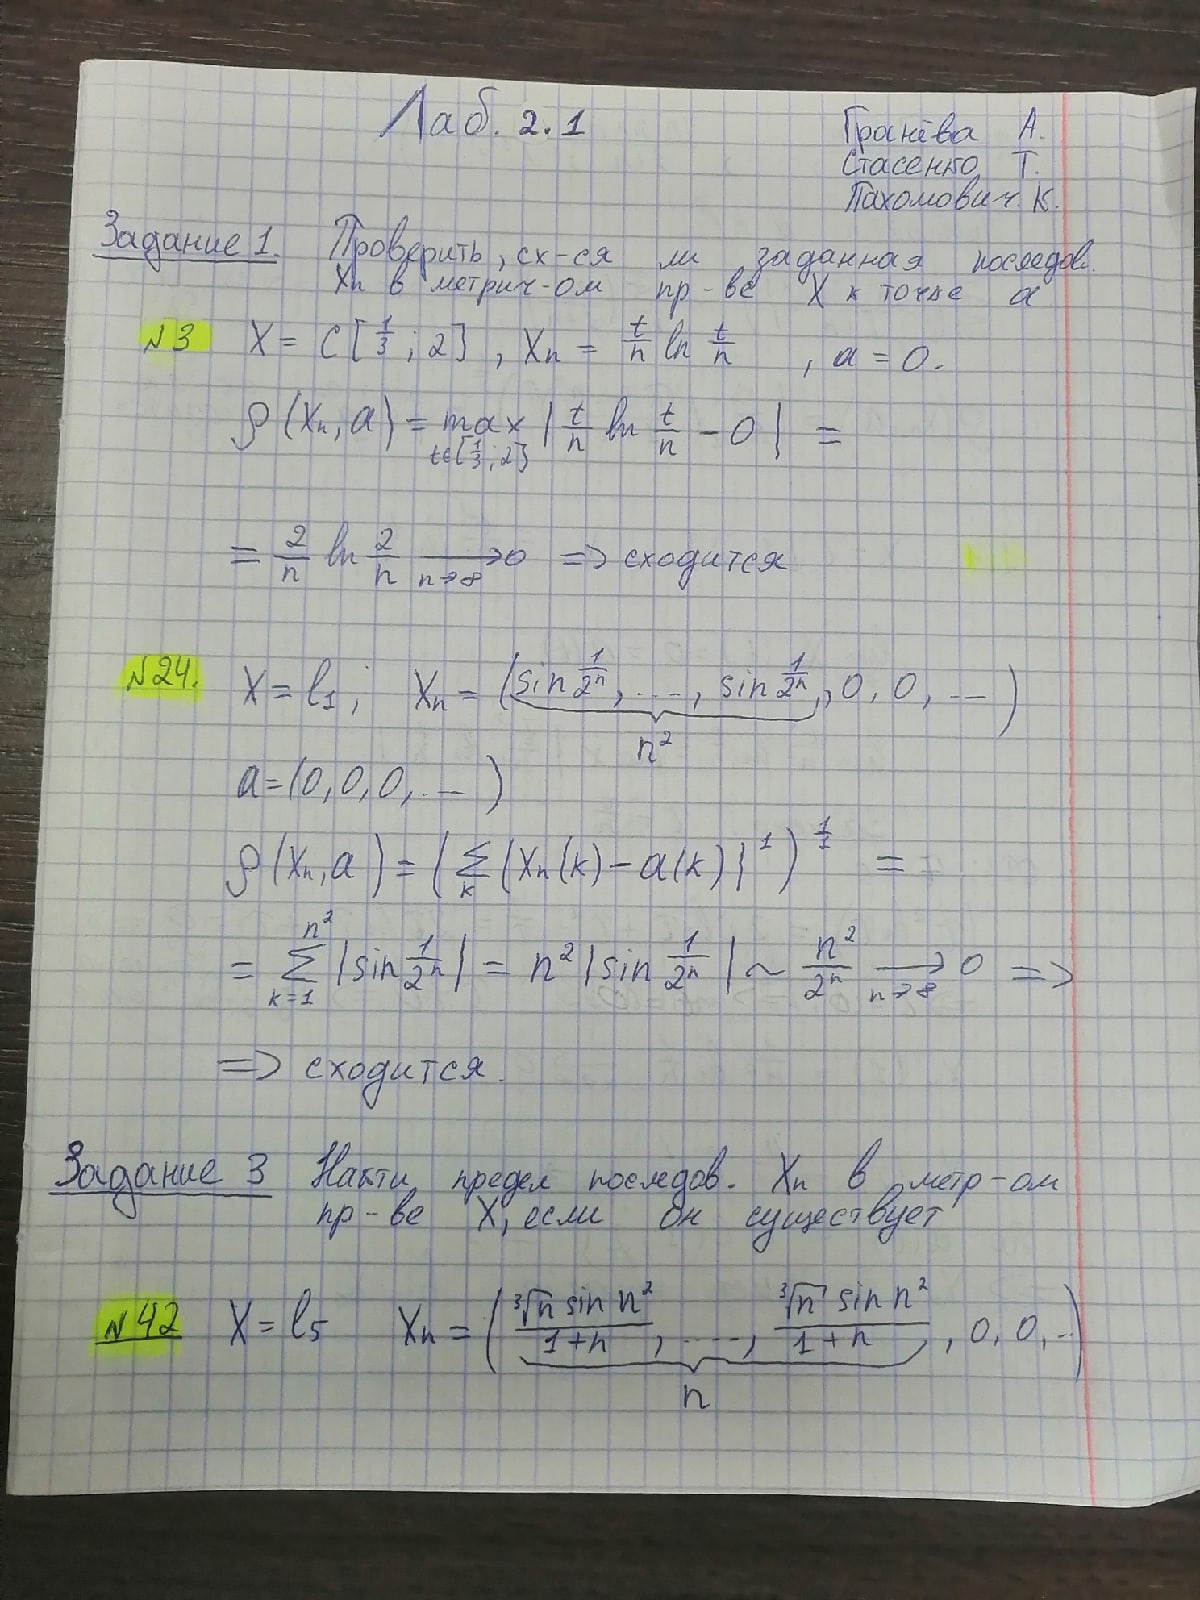 Лаб. 2.1
Гранёва А.
Стасенко Т.
Пахомович К.
Задание 1. Проверить, сх-ся ли заданная последов.
Xn в метрич-ом пр-ве X к точке a
№3 X = C[1/3; 2], Xn = t/n ln t/n, a = 0.
ρ(Xn, a) = max t∈[1/3; 2] |t/n ln t/n − 0| =
= 2/n ln 2/n ⟶ 0 n→∞ => сходится
№24. X = l₁; Xn = (sin 1/2ⁿ, ...., sin 1/2ⁿ, 0, 0, ...)
n²
a = (0, 0, 0, ...)
ρ(Xn, a) = (∑k (Xn(k) − a(k)|¹)^1/1 =
= ∑ k=1 n² |sin 1/2ⁿ| = n² |sin 1/2ⁿ| ~ n²/2ⁿ ⟶ 0 n→∞ =>
=> сходится.
Задание 3 Найти предел последов. Xn в метр-ом
пр-ве X, если он существует
№42 X = l₅ Xn = (∛n sin n²/1+n, ...., ∛n sin n²/1+n, 0, 0, ..)
n